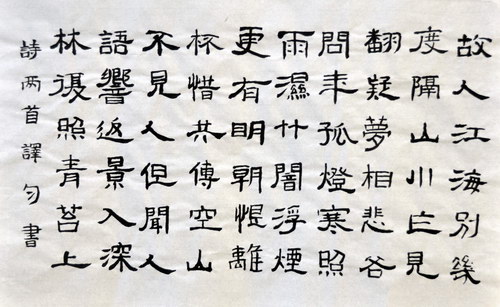 故人江海別幾
度隔山川乍見
翻疑夢相悲各
問年孤燈寒照
雨濕竹闇浮煙
更有明朝恨離
杯惜共傳空山
不見人但聞人
語響返景入深
林復照青苔上
詩两首譯匀書